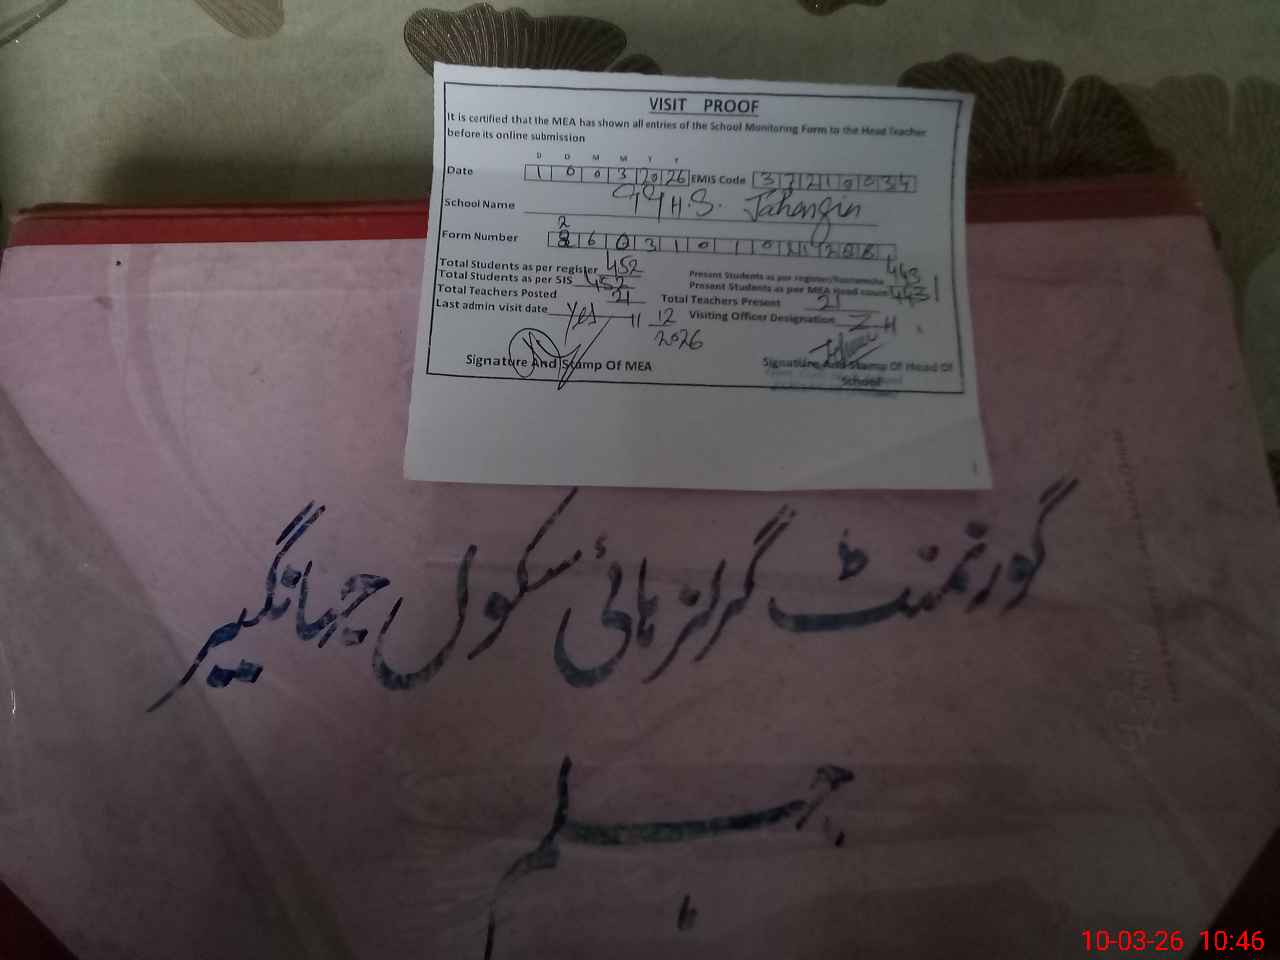 VISIT PROOF
It is certified that the MEA has shown all entries of the School Monitoring Form to the Head Teacher
before its online submission
D D M M Y Y
Date 1 0 0 3 20 26 EMIS Code 3 7 2 1 0 0 34
School Name GGHS. Jahangir
Form Number 2 6 0 3 1 0 1 0
Total Students as per register 452 Present Students as per register 443
Total Students as per SIS 452 Present Students as per MEA Head count 443
Total Teachers Posted 21 Total Teachers Present 21
Last admin visit date Yes 11 12 2026 Visiting Officer Designation
Signature And Stamp Of MEA Signature And Stamp Of Head Of
School
گورنمنٹ گرلز ہائی سکول جہانگیر
جہلم
10-03-26 10:46